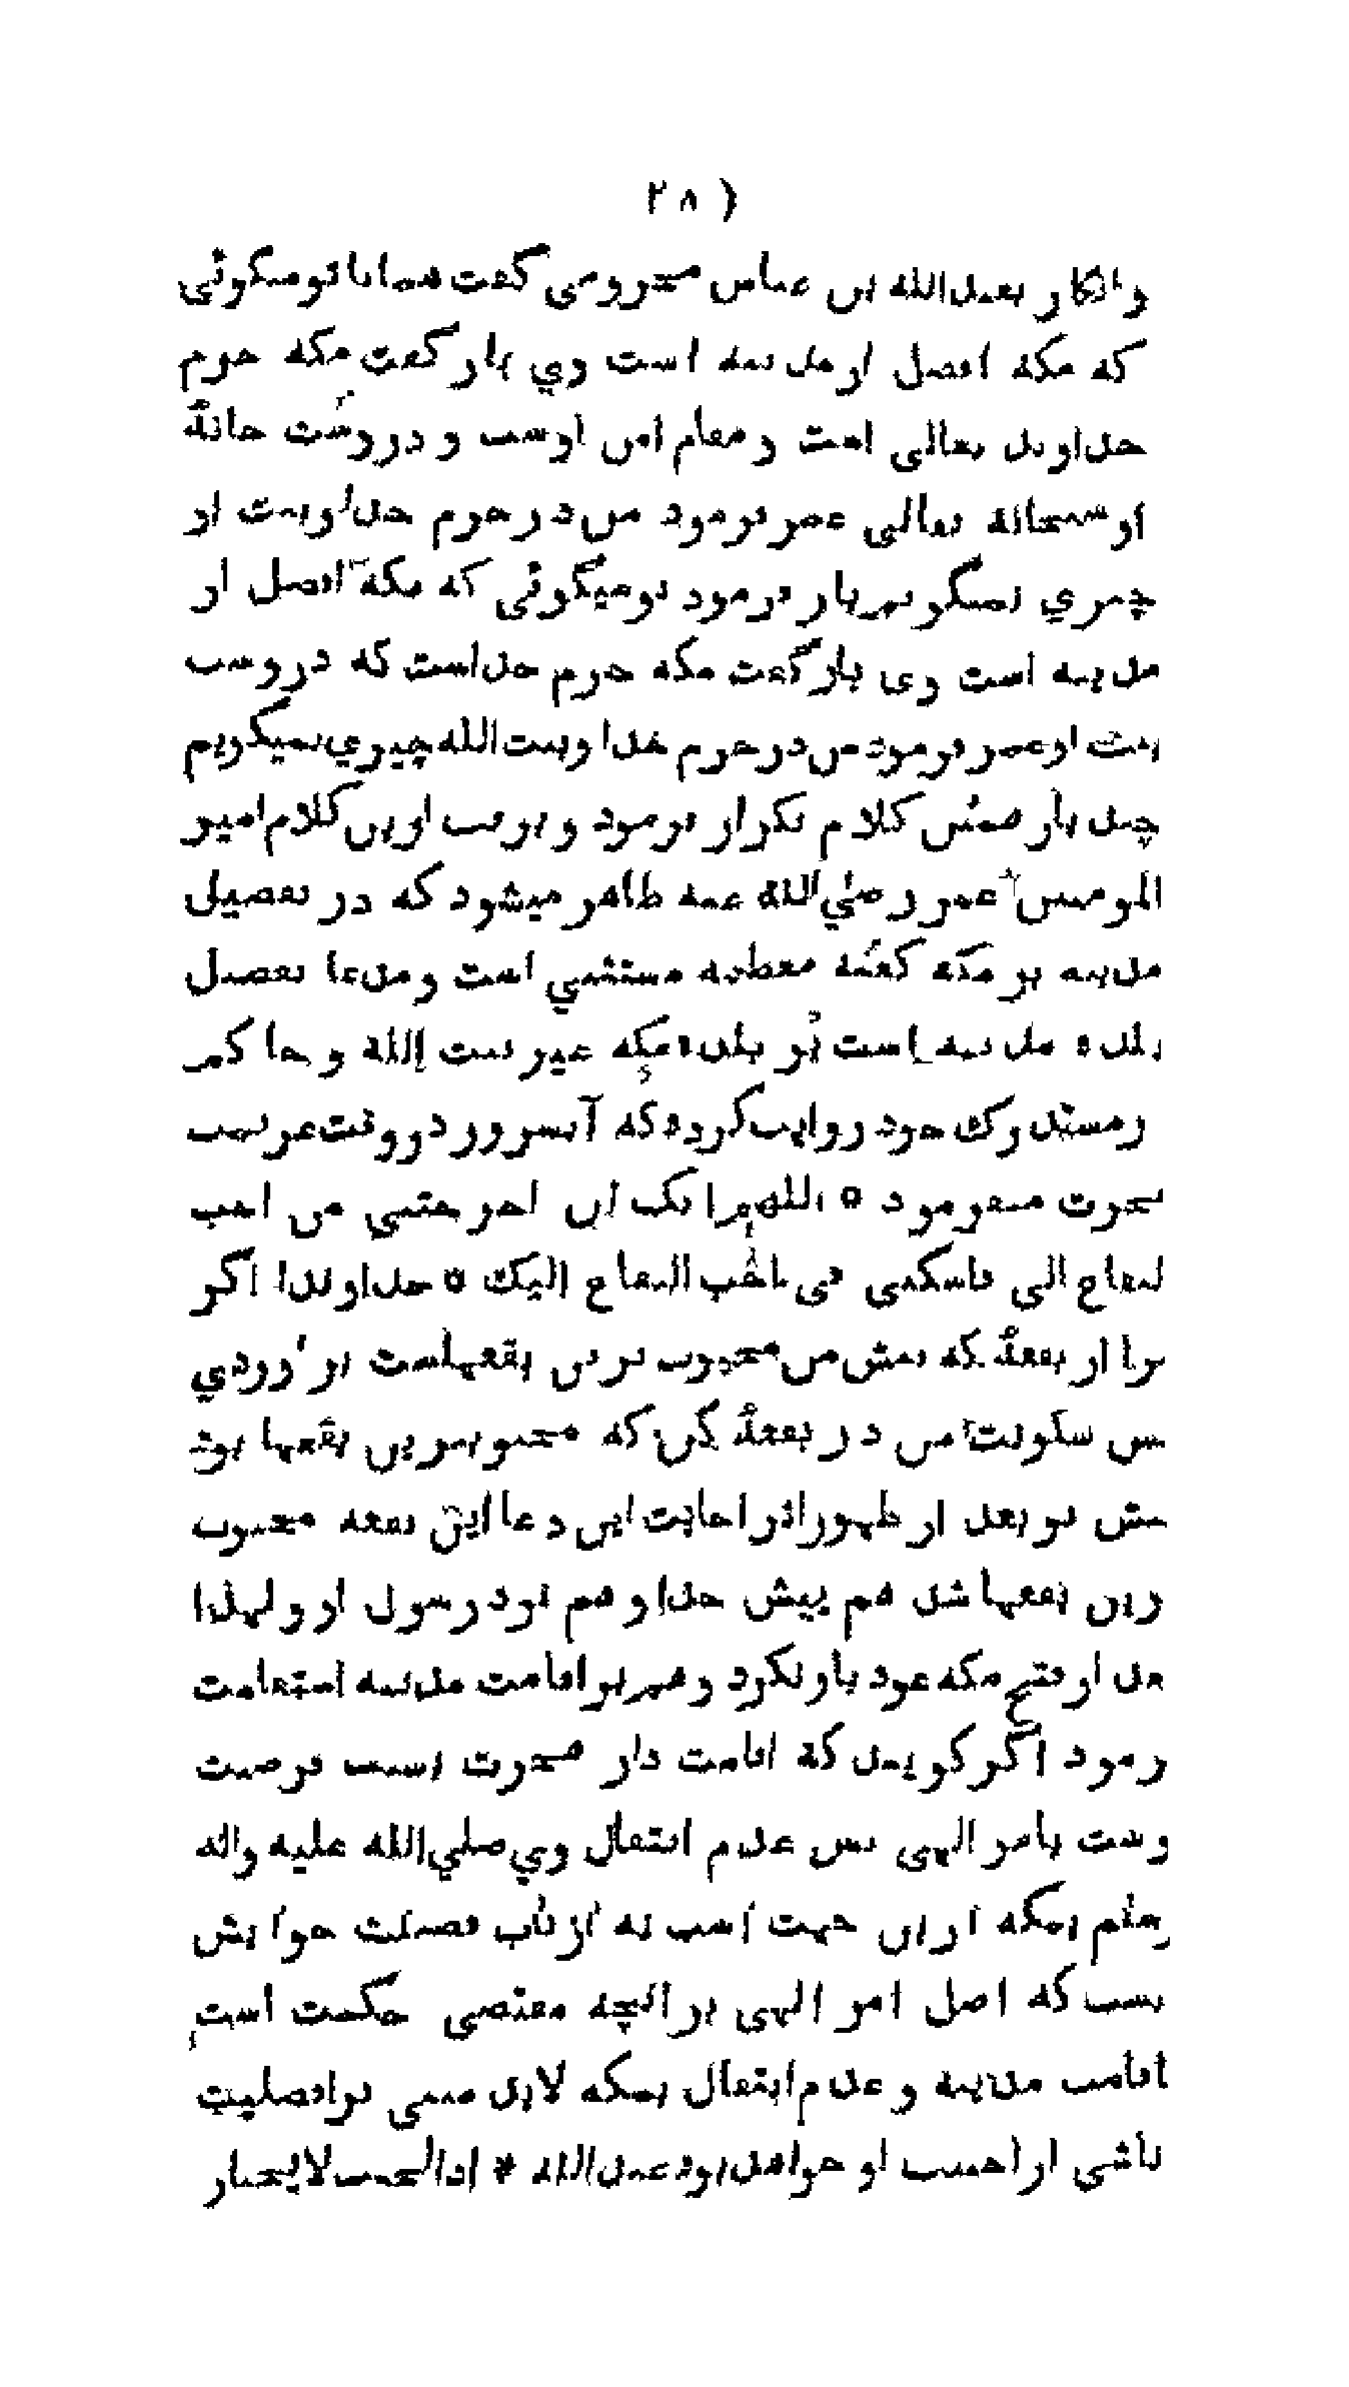 ( ۲۸
وانکار بعبدالله ابن عباس مخزومی گفت همانا تو میگوئی
که مکه افضل از مدینه است وي باز گفت مکه حرم
خداوند تعالی است و مقام امن اوست و دروست خانهٔ
او سبحانه تعالی عمر فرمود من در حرم خدا و بیت او
چیزي نمیگویم باز فرمود تو میگوئی که مکه افضل از
مدینه است وی باز گفت مکه حرم خداست که دروست
بیت او عمر فرمود من در حرم خدا و بیت الله چیزي نمیگویم
چند بار همین کلام تکرار فرمود و برفت ازین کلام امیر
المومنین عمر رضي الله عنه ظاهر میشود که در تفضیل
مدینه بر مکه کعبه معظمه مستثني است و مدعا تفضیل
بلده مدینه است بر بلده مکه غیر بیت الله و حاکم
رمستدرک خود روایت کرده که آنسرور در وقت عزیمت
هجرت میفرمود ٥ اللهم انک ان اخرجتني من احب
لبقاع الی فاسکنی فی احب البقاع الیک ٥ خداوندا اگر
مرا از بقعهٔ که پیش من محبوب ترین بقعهاست بر آوردي
پس سکونت من در بقعهٔ کن که محبوبترین بقعها بود
پیش تو بعد از ظهور اثر اجابت این دعا این بقعه محبوب
رین بقعها شد هم پیش خدا و هم نزد رسول او ولهذا
عد از فتح مکه عود باو نکرد و هم بر اقامت مدینه استقامت
رمود اگر گویند که اقامت دار هجرت بسبب فرضیت
وست بامر الهی پس عدم انتقال وي صلي الله علیه واله
وسلم بمکه ازین جهت است نه از باب فضیلت جوابش
نست که اصل امر الهی بر انچه مقتضی حکمت است
اقامت مدینه و عدم انتقال بمکه لابد مبنی بر افضلیت
ناشی از احبیت او خواهد بود عند الله * اذ الحبیب لا یختار